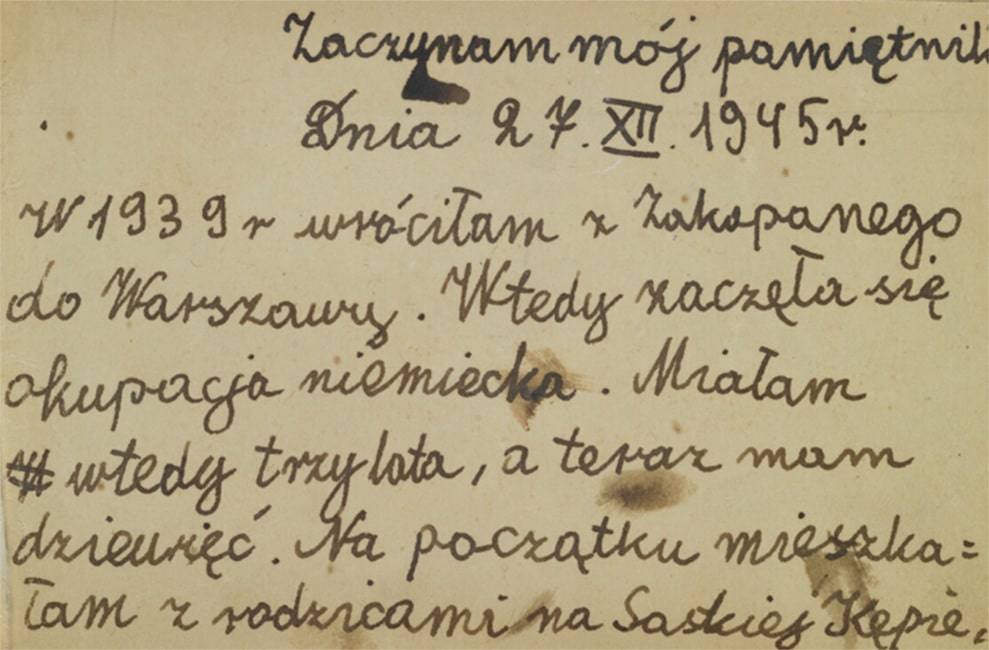 Zaczynam mój pamiętnik
Dnia 27. XII. 1945 r.
W 1939 r wróciłam z Zakopanego
do Warszawy. Wtedy zaczęła się
okupacja niemiecka. Miałam
wtedy trzy lata, a teraz mam
dziewięć. Na początku mieszka=
łam z rodzicami na Saskiej Kępie,